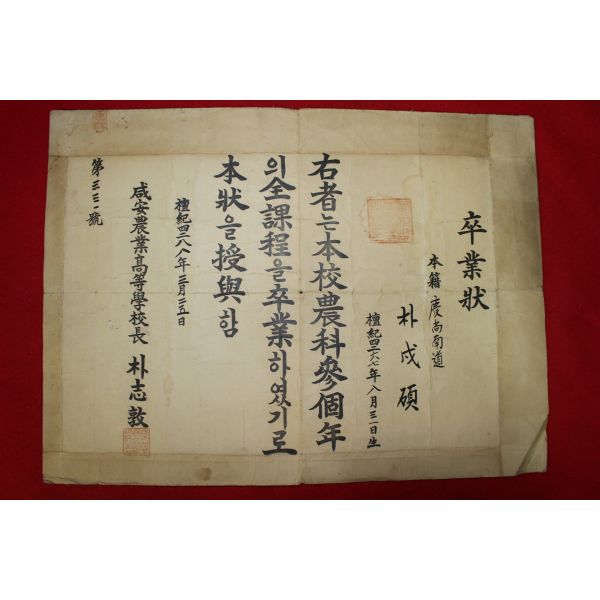 卒業狀
本籍 慶尚南道
朴戊碩
檀紀四二六七年八月三一日生
右者는本校農科參個年
의全課程을卒業하였기로
本狀을授與함
檀紀四二八八年三月二五日
咸安農業高等學校長 朴志敦
第三三一號